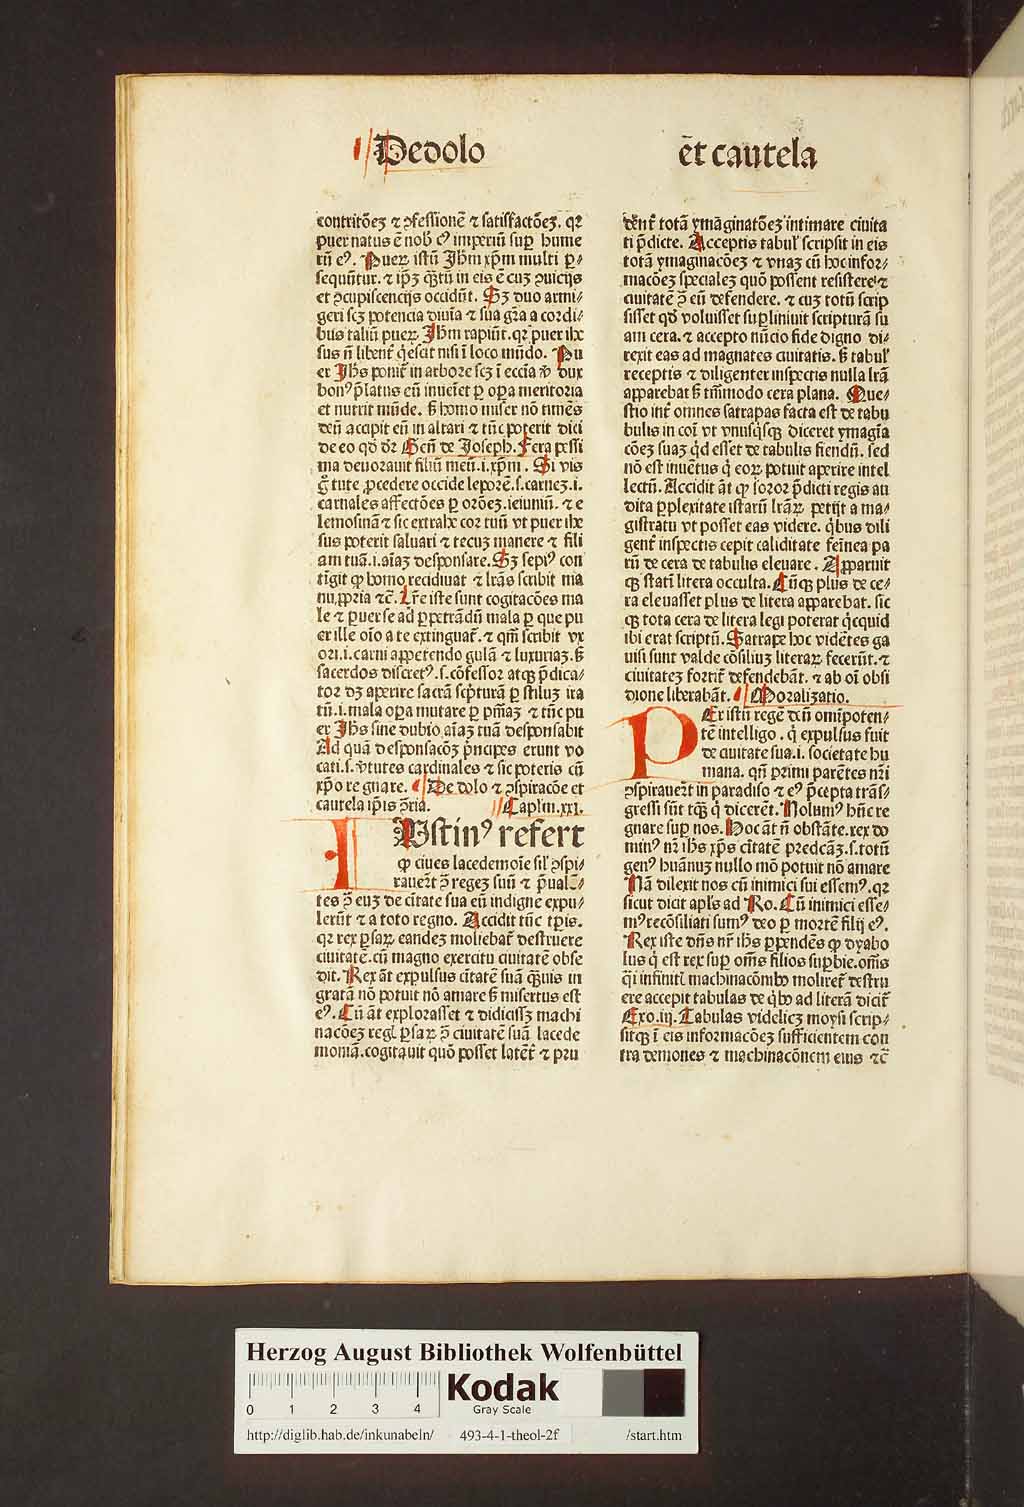 De dolo
et cautela
contritōeȝ ⁊ ꝯfessionē ⁊ satisfactōeȝ. qꝛ
puer natus ē nob̛ cꝰ imperiū suꝑ hume
rū eꝰ. Puerꝝ istū Jhm xp̄m multi ꝑ⸗
sequūtur. ⁊ ip̄ȝ qͣȝtū in eis ē cuȝ ꝯuicijs
et ꝯcupiscencijs occidūt. Sȝ duo armi⸗
geri scȝ potencia diuīa ⁊ sua gr̄a a cordi⸗
bus taliū puerꝝ Jhm rapiūt. qꝛ puer ihe
sus nō libent̛ q̄escit nisi ī loco mūdo. Pu
er Jhs ponit̛ in arbore scȝ ī ecc̄ia vꝫ dux
bonꝰ p̄latus eū inueīet ꝑ oꝑa meritoria
et nutrit mūde. sȝ homo miser nō timēs
deū accipit eū in altari ⁊ tūc poterit dici
de eo qd̄ dr̄ Gen̄ de Joseph. Fera pessi
ma deuorauit filiū meū .i. xp̄m. Si vis
g̊ tute ꝓcedere occide leporē .s. carneȝ .i.
carnales affectōes ꝑ orōeȝ. ieiuniū. ⁊ e
lemosinā ⁊ sic extrahe cor tuū vt puer ihe
sus poterit saluari ⁊ tecuȝ manere ⁊ fili
am tuā .i. aīaȝ desponsare. Sȝ sepiꝰ con
tīgit ꝙ homo recidiuat ⁊ lr̄as scribit ma
nu ꝓpria ⁊c̄. Lr̄e iste sunt cogitacōes ma
le ⁊ ꝑuerse ad ꝑpetrādū mala ꝑ que pu
er ille oīo a te extinguat̛. ⁊ qm̄ scribit vx
ori .i. carni appetendo gulā ⁊ luxuriaȝ. sȝ
sacerdos discretꝰ .s. cōfessor atqȝ p̄dica⸗
tor dȝ aperire sacrā sc̛pturā ꝑ stiluȝ ira
tū .i. mala oꝑa mutare ꝑ pm̄aȝ ⁊ tūc pu
er Jhs sine dubio aīaȝ tuā desponsabit
Ad quā desponsacōȝ p̛ncipes erunt vo
cati .s. v̛tutes cardinales ⁊ sic poteris cū
xp̄o regnare. De dolo ⁊ ꝯspiracōe et
cautela ip̄is ꝯtria. Caplm .xxi.
IUstinꝰ refert
ꝙ ciues lacedemoīe sil̛ ꝯspi⸗
rauer̄t ꝯ regeȝ suū ⁊ p̄ual⸗
tes ꝯ euȝ de ciuitate sua eū indigne expu⸗
lerūt ⁊ a toto regno. Accidit tūc tꝑis.
qꝛ rex ꝑsarꝝ eandeȝ moliebat̛ destruere
ciuitatē. cū magno exercitu ciuitatē obse
dit. Rex āt expulsus ciuitatē suā qͣȝuis in
gratā nō potuit nō amare sȝ misertus est
eꝰ. Cū āt explorasset ⁊ didicissȝ machi
nacōeȝ regꝭ ꝑsarꝝ ꝯ ciuitatē suā lacede
moniā. cogitauit quō posset latēt̛ ⁊ pru
dēnt̛ totā ymaginatōeȝ intimare ciuita
ti p̄dicte. Acceptis tabul̛ scripsit in eis
totā ymaginacōeȝ ⁊ vnaȝ cū hoc infor⸗
macōeȝ specialeȝ quō possent resistere ⁊
ciuitatē ꝯ eū defendere. ⁊ cuȝ totū scrip
sisset qd̄ voluisset suꝑliniuit scripturā su
am cera. ⁊ accepto nūcio fide digno di⸗
rexit eas ad magnates ciuitatis. sȝ tabul̛
receptis ⁊ diligenter inspectis nulla lr̄a
apparebat sȝ tm̄modo cera plana. Que⸗
stio int̛ omnes satrapas facta est de tabu
bulis in coī vt vnusq̛sqȝ diceret ymagīa
cōeȝ suaȝ q̛d esset de tabulis fiendū. sed
nō est inuētus q̛ eorꝝ potuit aperire intel
lectū. Accidit āt ꝙ soror p̄dicti regis au
dita ꝑplexitate istarū lr̄arꝝ petijt a ma⸗
gistratu vt posset eas videre. q̛bus dili
gent̛ inspectis cepit caliditate feīnea pa
rū de cera de tabulis eleuare. Apparuit
qȝ statī litera occulta. Cūqȝ plus de ce⸗
ra eleuasset plus de litera apparebat. sic
qȝ tota cera de litera legi poterat q̛cquid
ibi erat scriptū. Satrape hoc vidētes ga
uisi sunt valde cōsiliuȝ literarꝝ fecerūt. ⁊
ciuitateȝ fortit̛ defendebāt. ⁊ ab oī obsi
dione liberabāt. Moralizatio.
PEr istū regē dn̄ omīpoten⸗
tē intelligo. q̛ expulsus fuit
de ciuitate sua .i. societate hu
mana. qn̄ primi parētes nr̄i
ꝯspirauer̄t in paradiso ⁊ eꝰ p̄cepta trās⸗
gressi sūt tqȝ q̛ dicerēt. Nolumꝰ hūc re
gnare suꝑ nos. Hoc āt nō obstāte. rex do
minꝰ nr̄ ihs xp̄s ciuitatē p̄redcāȝ .s. totū
genꝰ huānuȝ nullo mō potuit nō amare
Nā dilexit nos cū inimici sui essemꝰ. qꝛ
sicut dicit apl̛s ad Ro. Cū inimici esse⸗
mꝰ recōsiliati sumꝰ deo ꝑ mortē filij eꝰ.
Rex iste dn̄s nr̄ ihs ꝑpendēs ꝙ dyabo
lus q̛ est rex suꝑ om̄s filios suꝑbie. om̄s
q̄i infinitꝭ machinacōnibꝫ moliret̛ destru
ere accepit tabulas de q̛bꝫ ad literā dicit̛
Exo. iij. Tabulas videlicȝ moysi scrip⸗
sitqȝ ī eis informacōeȝ sufficientem con
tra demones ⁊ machinacōnem eius ⁊c̄
Herzog August Bibliothek Wolfenbüttel
0 1 2 3 4
Kodak
Gray Scale
http://diglib.hab.de/inkunabeln/ 493-4-1-theol-2f /start.htm